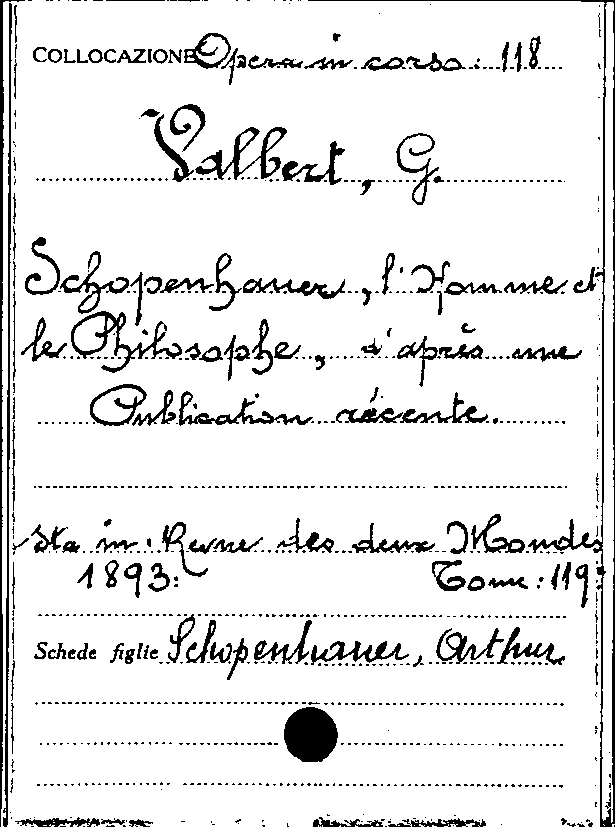 COLLOCAZIONE Opera in corso: 118
Valbert, G.
Schopenhauer, l'Homme et
le Philosophe, d'après une
Publication récente.
Sta in: Revue des deux Mondes
1893: Tome: 119:
Schede figlie Schopenhauer, Arthur